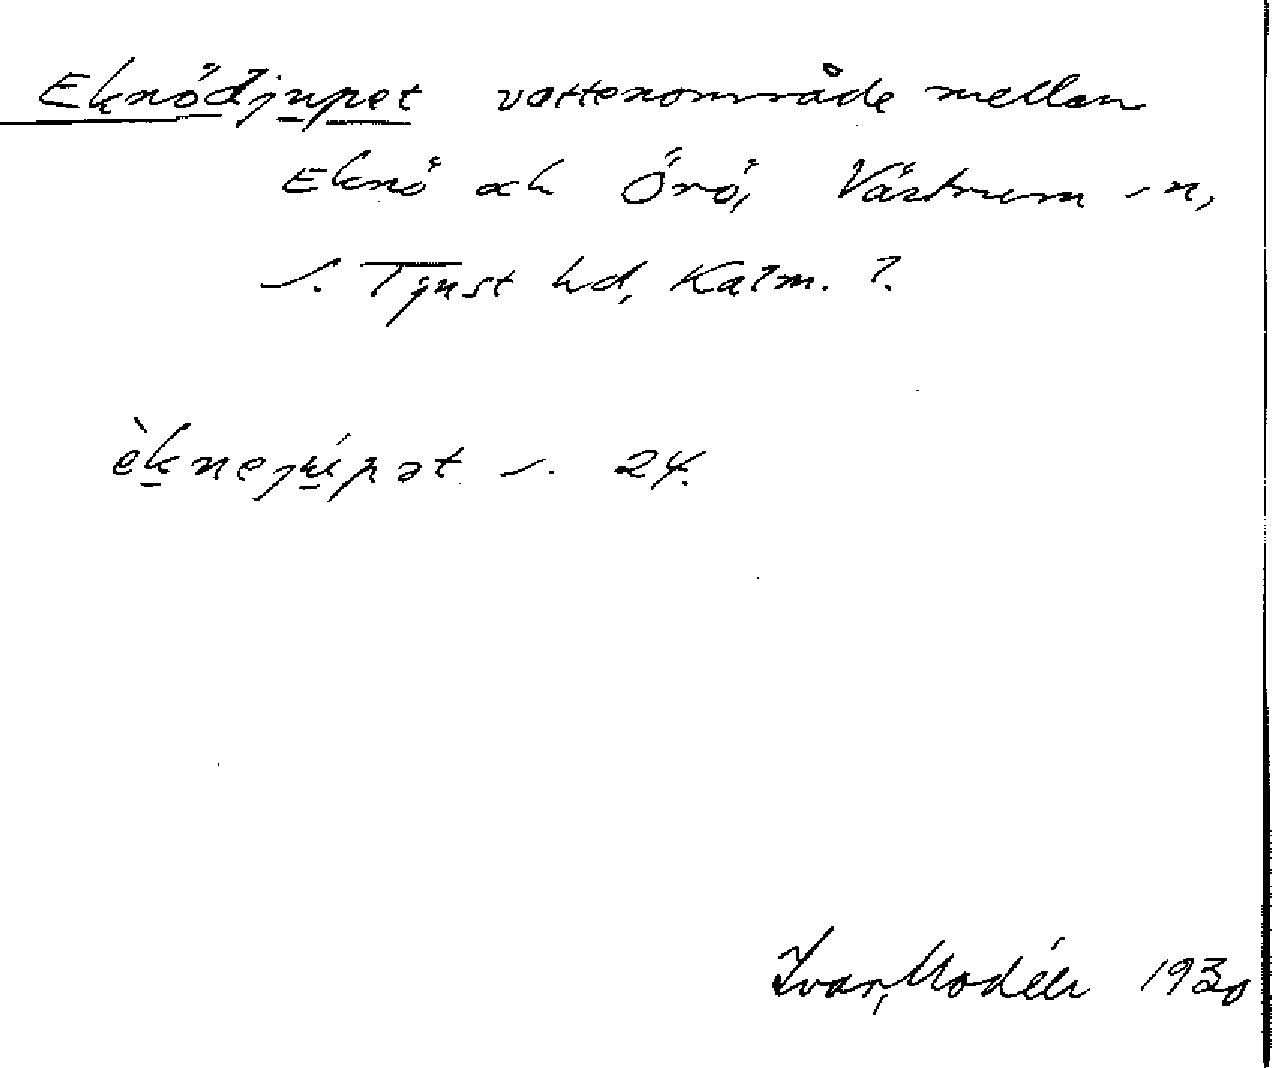 Eknödjupet vattenområde mellan
Eknö och Örö, Västrum sn,
S. Tjust hd, Kalm. l.
èknejúpət s. 24.
Ivar Modéer 1930